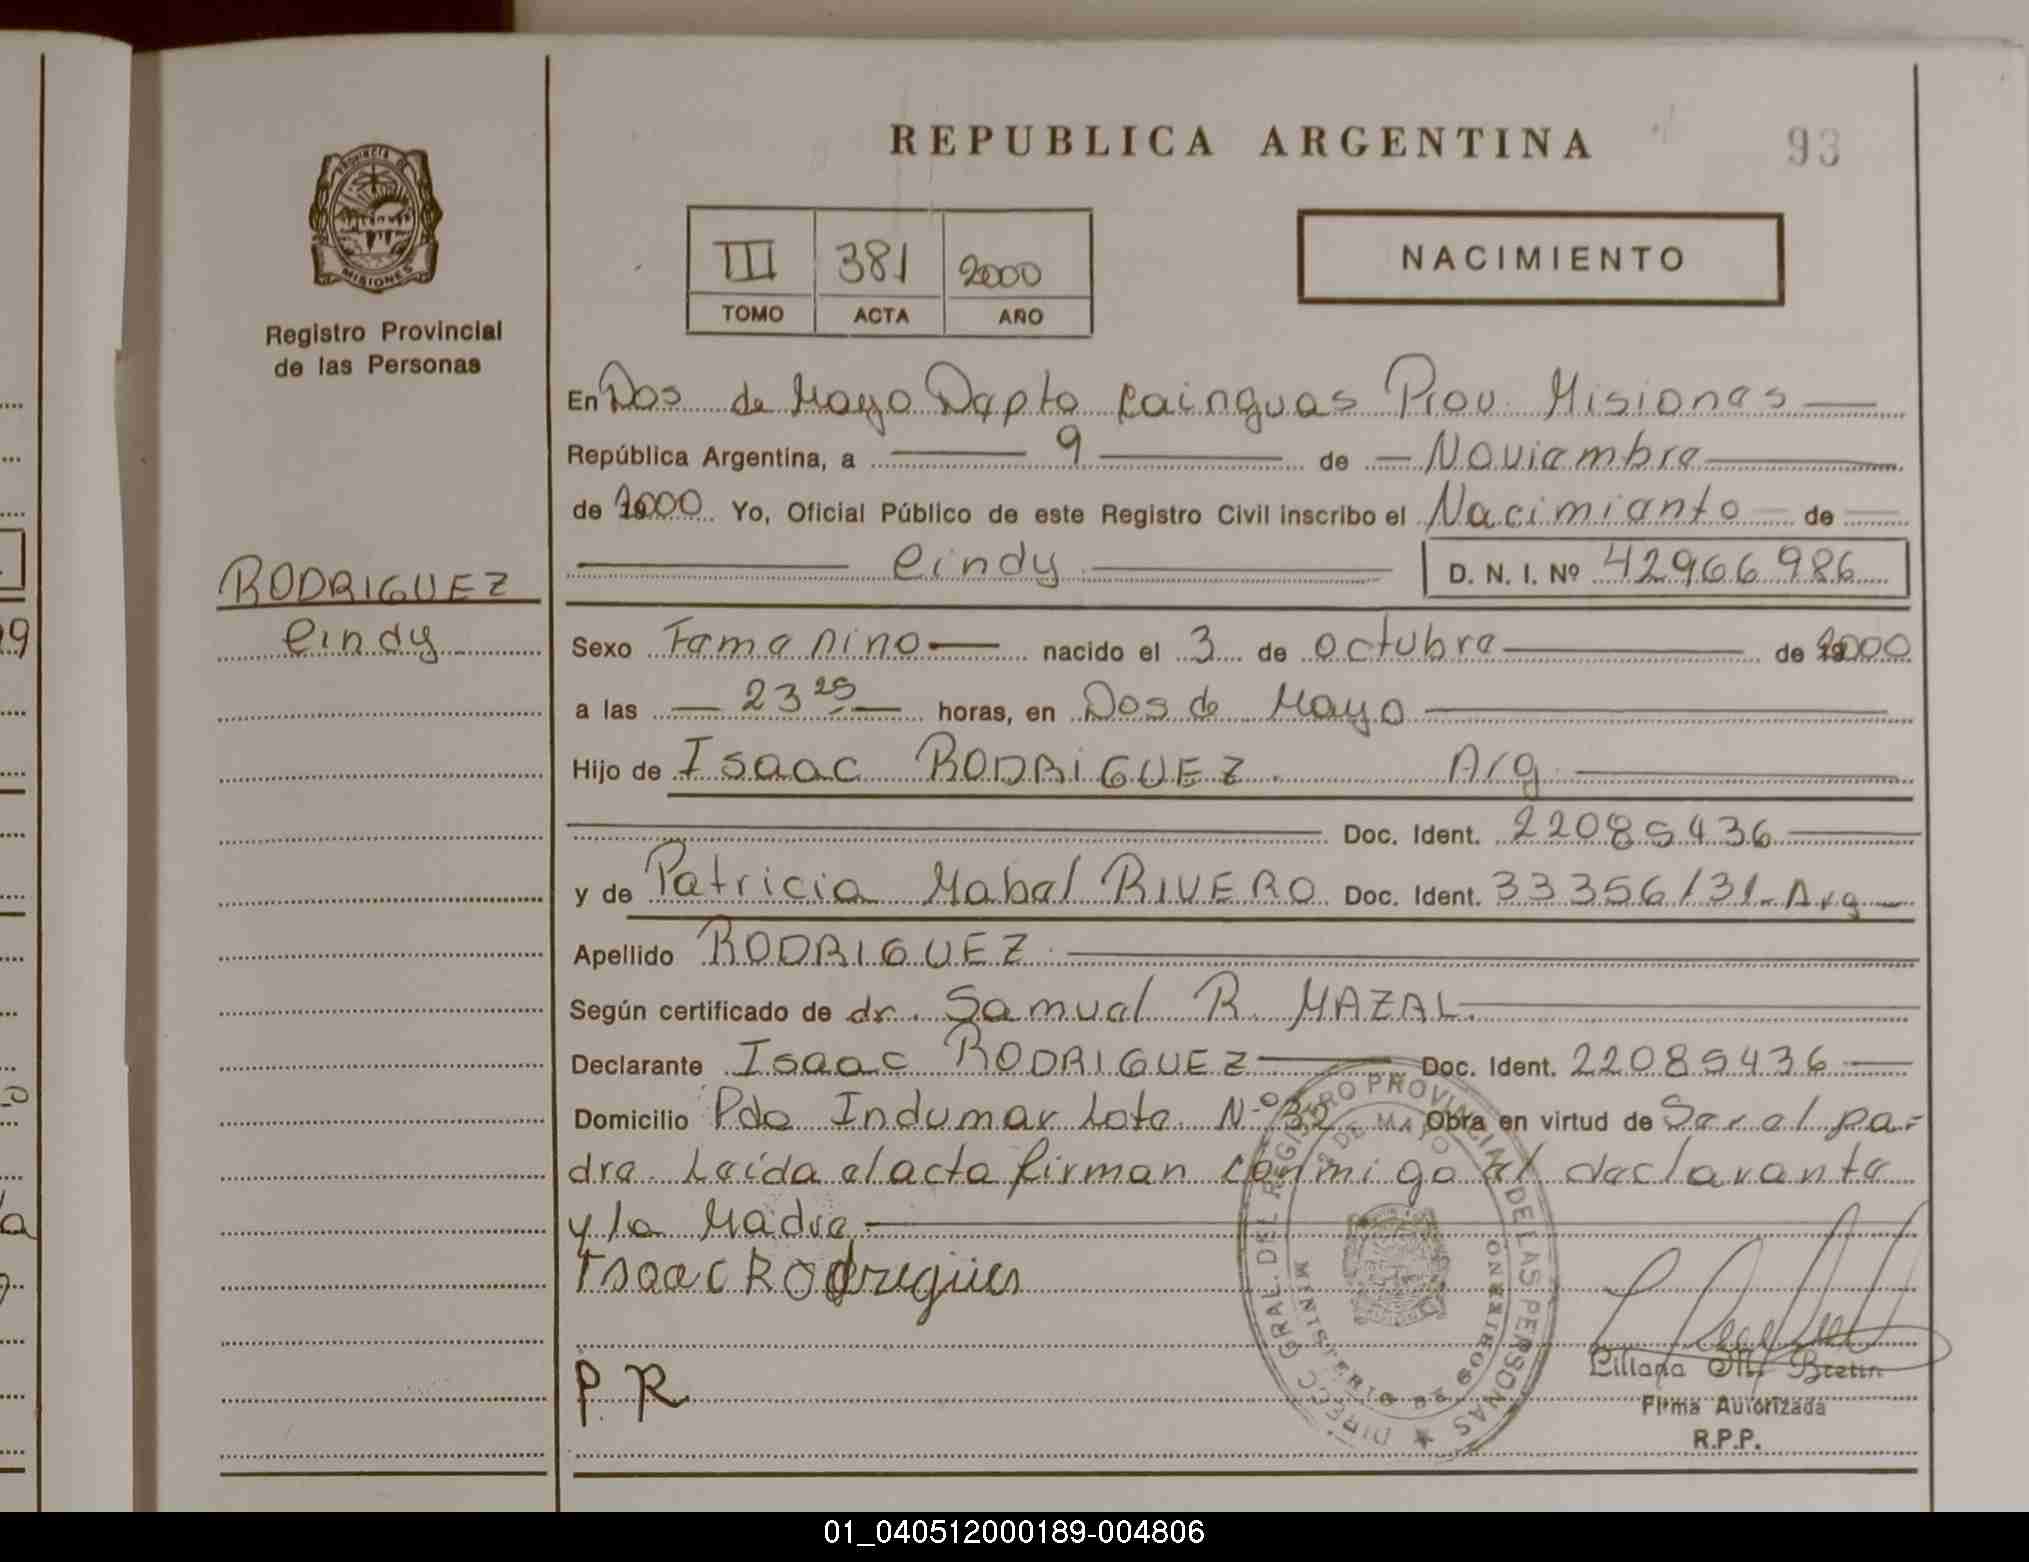 REPUBLICA ARGENTINA
93
PROVINCIA DE MISIONES
Registro Provincial
de las Personas
III 381 2000
TOMO ACTA AÑO
NACIMIENTO
En Dos de Mayo Dapto Cainguas Prov. Misiones
República Argentina, a 9 de Noviembre
de 2000 Yo, Oficial Público de este Registro Civil inscribo el Nacimiento de
Cindy D. N. I. Nº 42966986
RODRIGUEZ
Cindy
Sexo Femenino nacido el 3 de octubre de 2000
a las 23 25 horas, en Dos de Mayo
Hijo de Isaac RODRIGUEZ. Arg
Doc. Ident. 22085436
y de Patricia Mabel RIVERO Doc. Ident. 33356131. Arg
Apellido RODRIGUEZ.
Según certificado de dr. Samuel R. MAZAL.
Declarante Isaac RODRIGUEZ Doc. Ident. 22085436
Domicilio Pdo Indumar Lote Nº 32 Obra en virtud de Ser el pa=
dre. Leída el acta firman conmigo el declarante
y la Madre.
Isaac Rodrigues
P. R
DIRECC GRAL. DEL REGISTRO PROVINCIAL DE LAS PERSONAS
2 DE MAYO
MINISTERIO DE GOBIERNO
MISIONES
Liliana M. Bretin
Firma Autorizada
R.P.P.
01_040512000189-004806